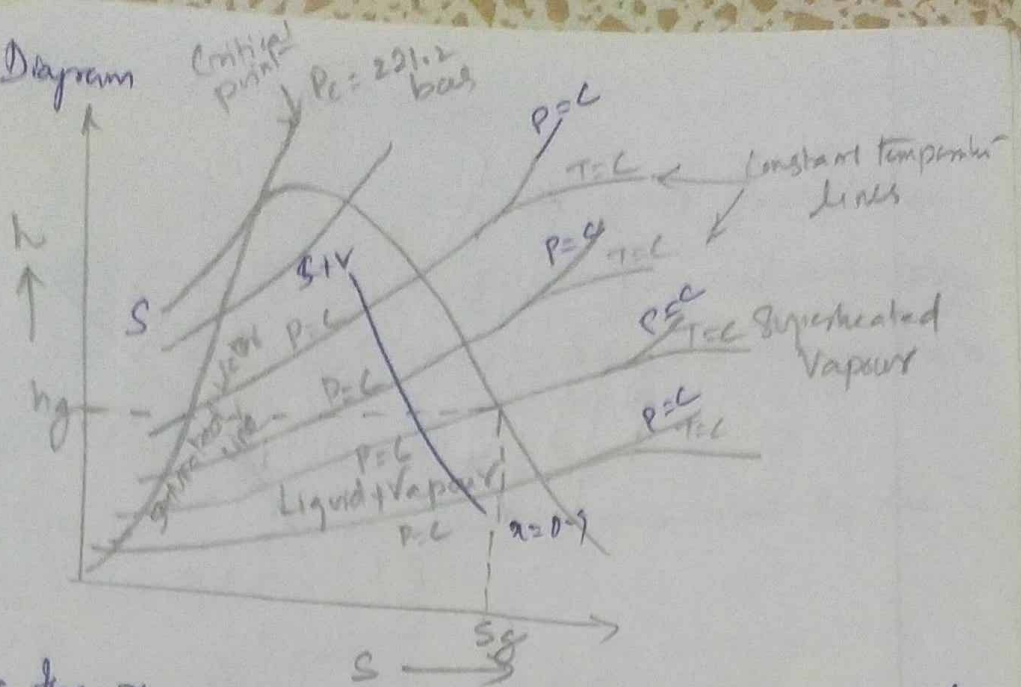 Diagram
Critical
point
Pc = 221.2
bar
P=C
T=C
Constant Temperatur
lines
h
P=C
T=C
S
S+V
P=C
P=C
T=C
Superheated
Vapour
P=C
hg
P=C
T=C
P=C
Liquid+Vapour
P=C
x=0.9
Sg
S